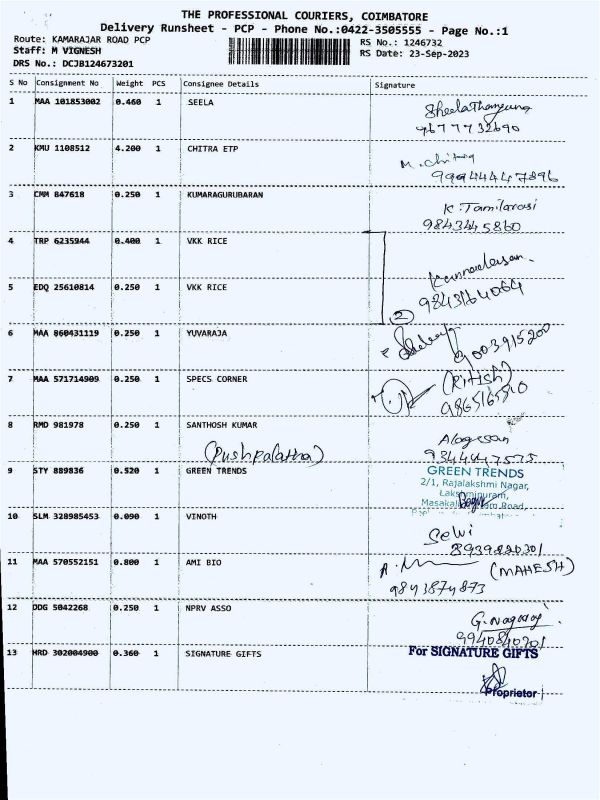 THE PROFESSIONAL COURIERS, COIMBATORE
Delivery Runsheet - PCP - Phone No.:0422-3505555 - Page No.:1
Route: KAMARAJAR ROAD PCP
Staff: M VIGNESH
DRS No.: DCJB124673201
RS No.: 1246732
RS Date: 23-Sep-2023
S No Consignment No Weight PCS Consignee Details Signature
1 MAA 101853002 0.460 1 SEELA
9677732690
2 KMU 1108512 4.200 1 CHITRA ETP
M. Chitra
99944447896
3 CMM 847618 0.250 1 KUMARAGURUBARAN
K. Tamilarasi
9843445860
4 TRP 6235944 0.400 1 VKK RICE
5 EDQ 25610814 0.250 1 VKK RICE
9843164064
2
6 MAA 860431119 0.250 1 YUVARAJA
9003915200
7 MAA 571714909 0.250 1 SPECS CORNER
(Ritish)
8 RMD 981978 0.250 1 SANTHOSH KUMAR
(Pushpalatha)
Alagesan
9344447575
9 STY 889836 0.520 1 GREEN TRENDS
GREEN TRENDS
2/1, Rajalakshmi Nagar,
Lakshmipuram,
Road,
10 SLM 328985453 0.090 1 VINOTH
Selvi
8939820301
11 MAA 570552151 0.800 1 AMI BIO
(MAHESH)
9843874873
12 DDG 5042268 0.250 1 NPRV ASSO
G. Nagaraj
9940840201
13 HRD 302004900 0.360 1 SIGNATURE GIFTS
For SIGNATURE GIFTS
Proprietor